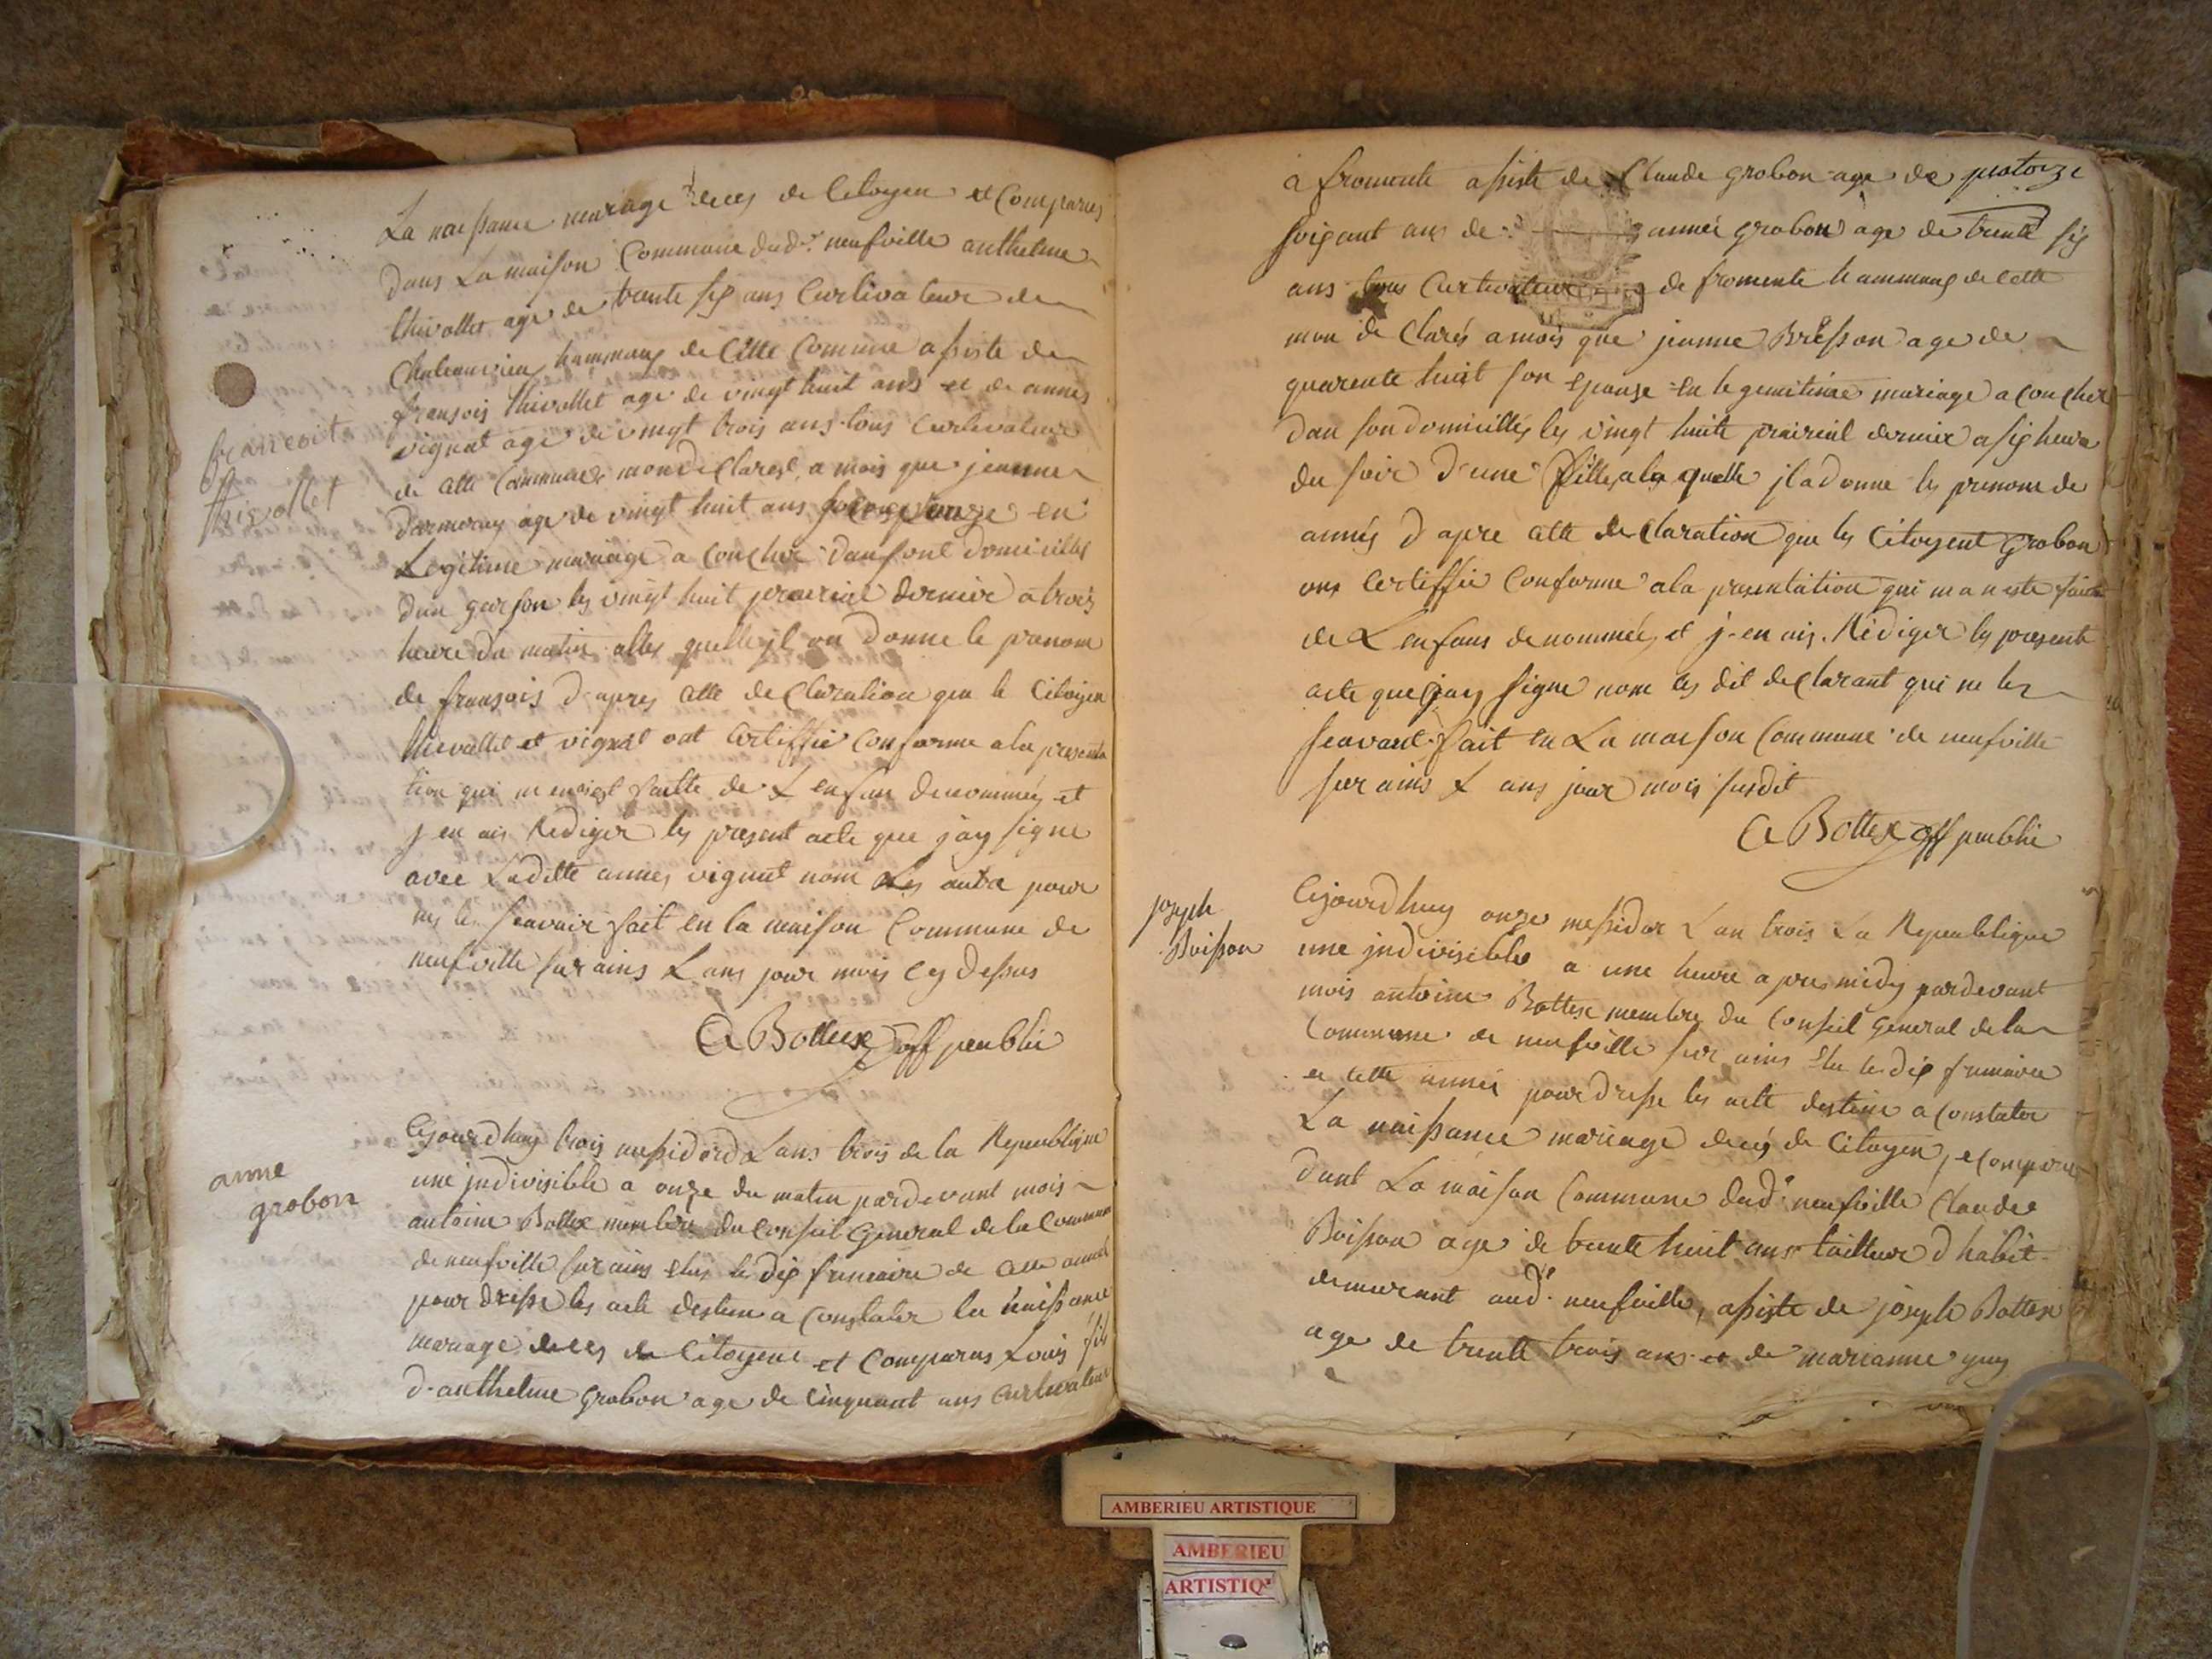 La naissance mariage deces de Citoyen et Comparus
dans La maison Commune dud.t neufville anthelme
thivollet age de trante six ans Curlivateur de
Chateauvieu hammaux de Cette Comune assiste de
fransois thivollet age de vingt huit ans et de annes
vignat age de vingt trois ans tous Curlivateur
de cette Commune mon de Claret a mois que jeanne
age de vingt huit ans en
Legitime mariage a Coucher dan font domicilles
dun garson les vingt huit prairial dernier a trois
heure du matin alles quelle jl on donne le pranom
de fransois d'apres cette de Claration que le Citoyen
thivollet et vignat ont Certiffie Conforme a la presenta
tion qui faitte de L enfan denommés et
j en ais Rediger les present acte que j'ay signe
avec Laditte annes vignat nom Les autre pour
nes les seavoir fait en la maison Commune de
neufville sur ains L ans jour mois cy dessus
A Bottex off peublic
francoit
thivollet
Cejourdhuy trois messidord L ans trois de la Republique
une jndivisible a onze du matin pardevant mois
antoine Bottex membre du Conseil General de la Commune
de neufville sur ains elus le dix frimaire de cette année
pour drisse les acte destine a Constater la naissance
mariage deces de Citoyene et Comparus Louis fils
d'anthelme grobon age de Cinquant ans Curlivateur
anne
grobon
a fromente assiste de Claude grobon age de
soixant ans de année grobon age de trente six
ans tous Curtivateur de fromente hammaux de Cette
mon de Clarés a mois que jeanne Bresson age de
quarente huit son epouze en legemitimae mariage a Coucher
dan son domicilles les vingt huite prairial dernier a six heure
du soir d'une fille a la quelle jl a donne les prenom de
annés d apre cette de Claration que les Citoyent grobon
ons Certiffie Conforme a la presentation qui ma n este faite
de L enfans denommée et j en ais Rédiger les present
acte que jay signe nom les dit de Clarant qui ne les
seavant fait en La maison Commune de neufville
sur ains L ans jour mois susdit
A Bottex off peublic
joseph
Boisson
Cejourdhuy onze messidor L an trois La Republique
une jndivisibles a une heure apres midy pardevant
mois antoine Bottex membre du Conseil General de la
Commune de neufville sur ains elu le dix frimaire
de cette année pour dresse les acte destine a Constater
La naissance mariage decés de Citoyen, et Comparu
dant La maison Commune dud.t neufville Claude
Boisson age de trente huit ans tailleur d habit
demeurant aud.t neufville, assiste de joseph Bottex
age de trente trois ans et de marianne guy
AMBERIEU ARTISTIQUE
AMBERIEU
ARTISTIQ